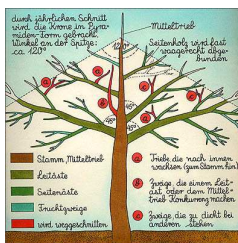 durch jährlichen Schnitt
wird die Krone in Pyra-
miden-Form gebracht,
Winkel an der Spitze:
ca. 120°
Mitteltrieb
120°
Seitenholz wird fast
waagerecht abge-
bunden
Stamm, Mitteltrieb
Leitäste
Seitenäste
Fruchtzweige
wird weggeschnitten
a Triebe die nach innen
wachsen (zum Stamm hin)
b Zweige, die einem Leit-
ast oder dem Mittel-
trieb Konkurrenz machen
c Zweige, die zu dicht bei
anderen stehen